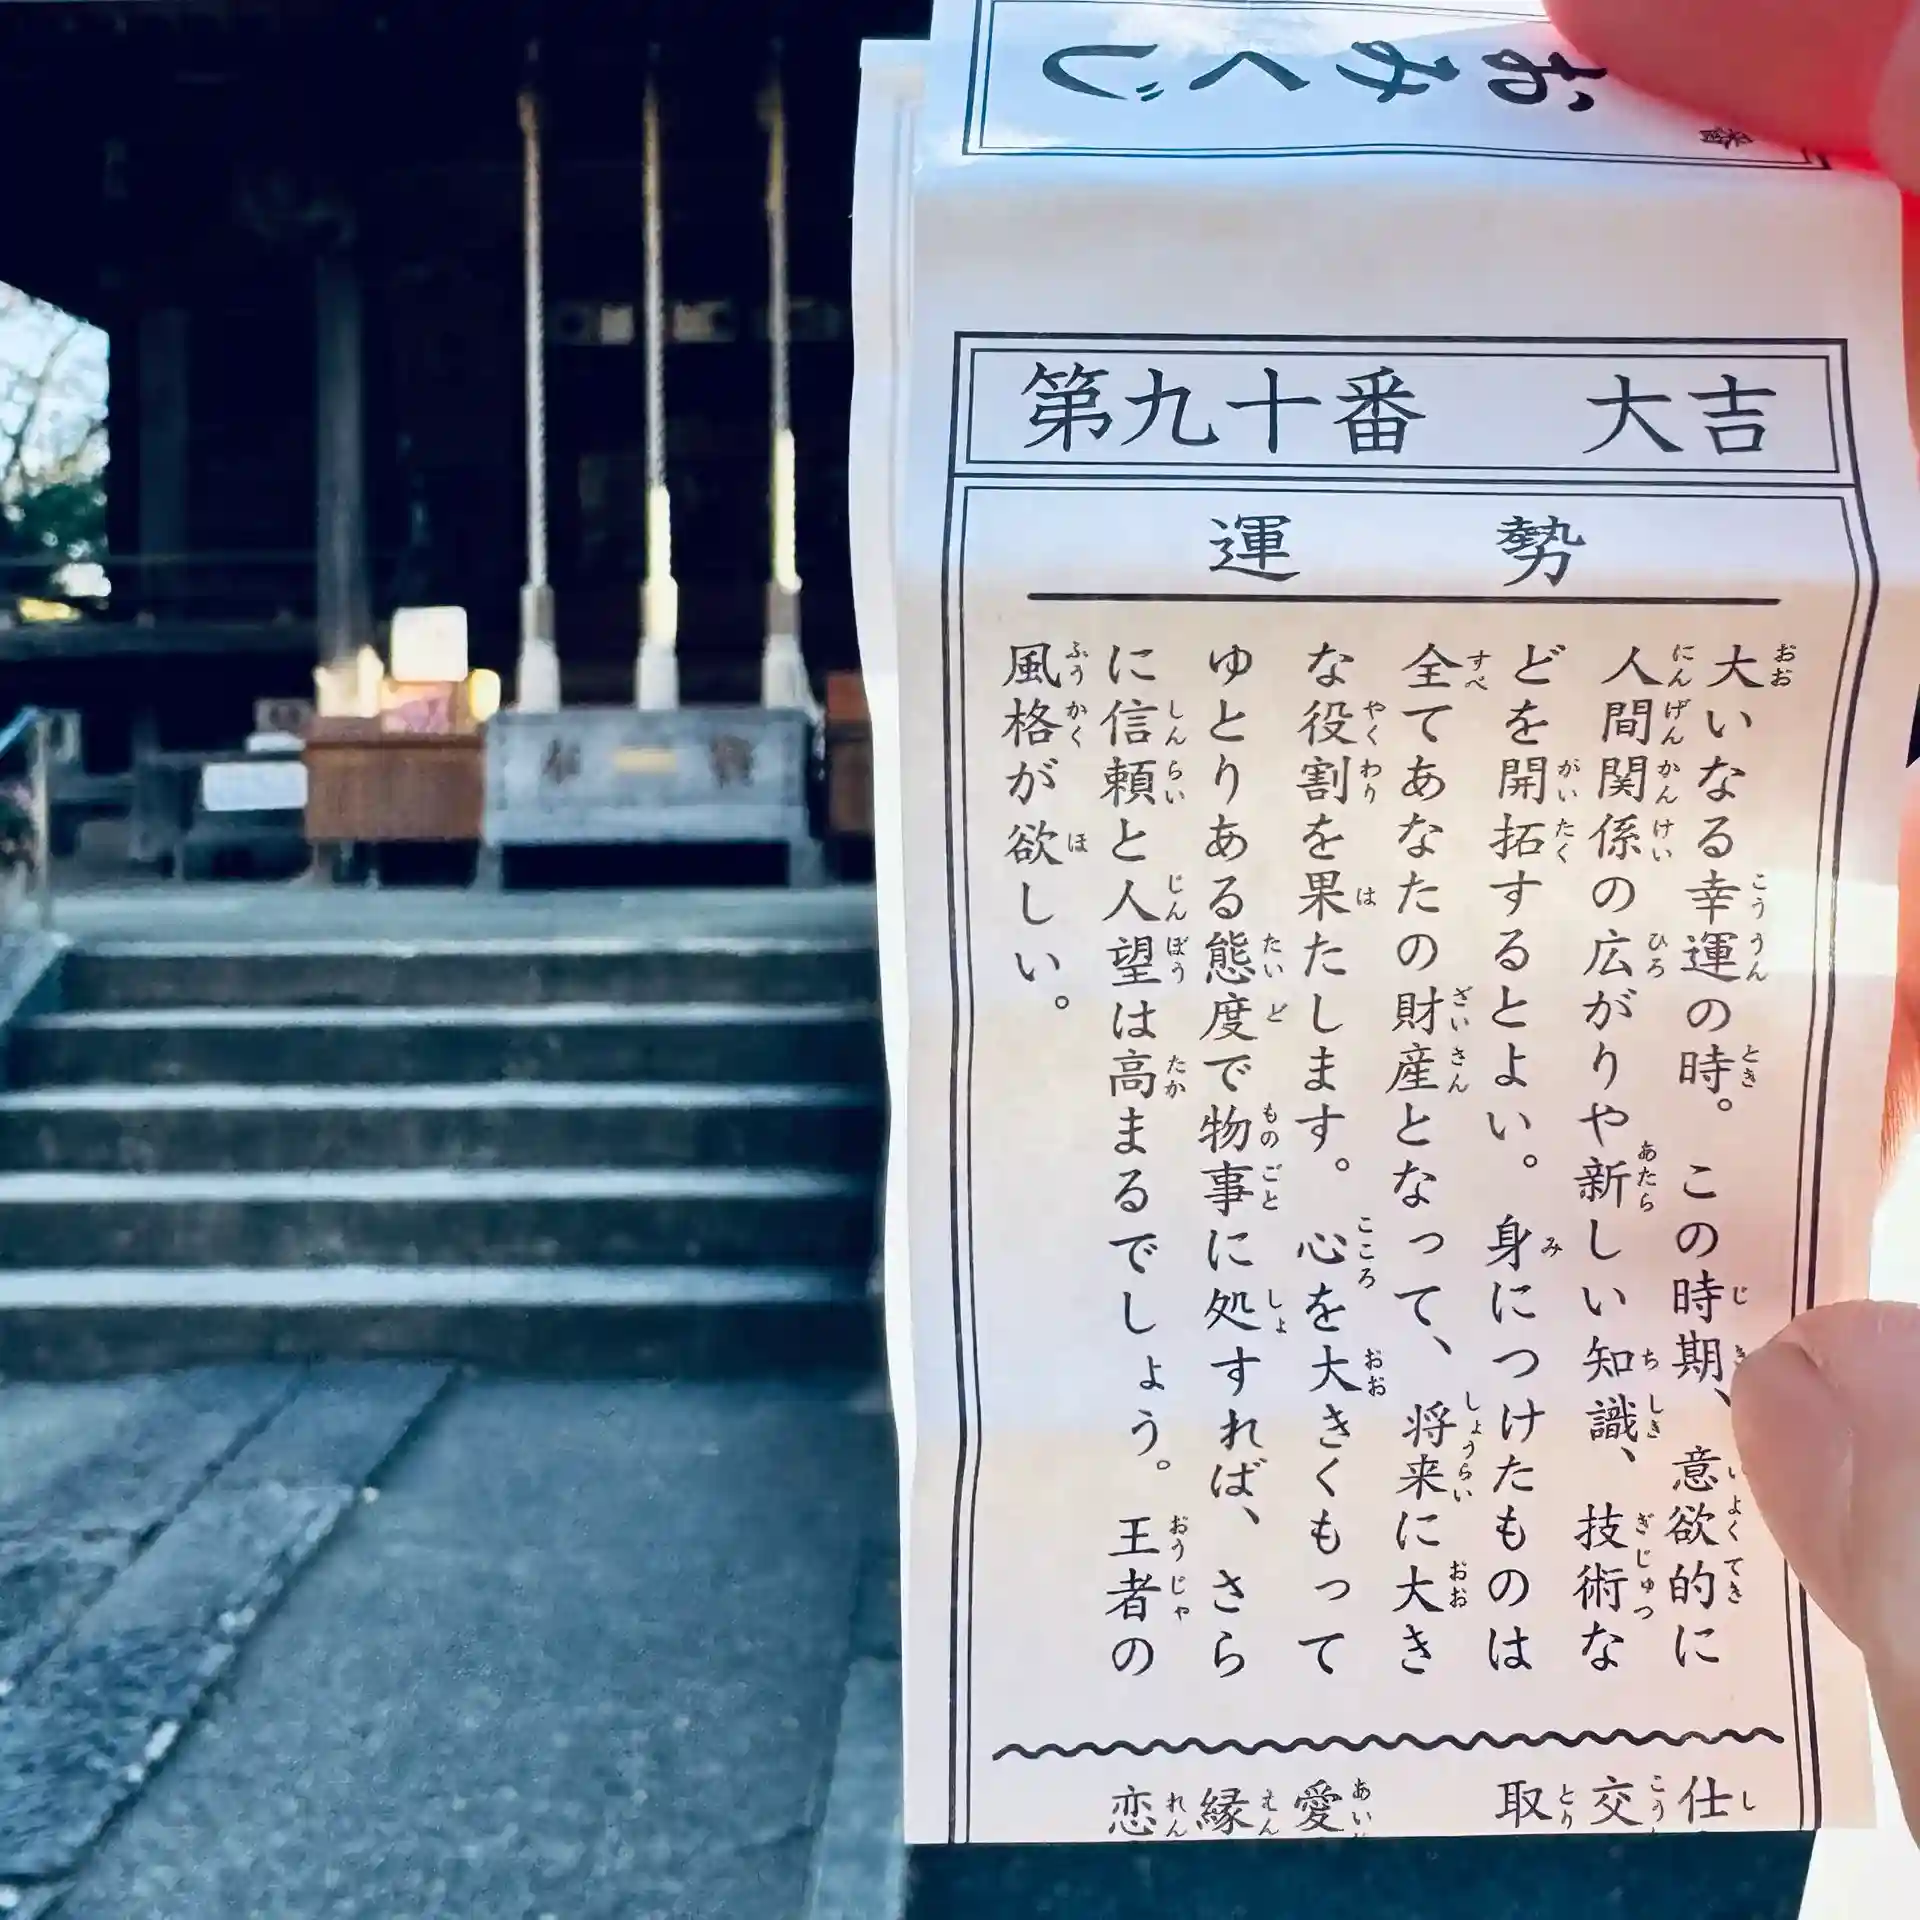 おみくじ
第九十番 大吉
運勢
大いなる幸運の時。この時期、意欲的に
人間関係の広がりや新しい知識、技術な
どを開拓するとよい。身につけたものは
全てあなたの財産となって、将来に大き
な役割を果たします。心を大きくもって
ゆとりある態度で物事に処すれば、さら
に信頼と人望は高まるでしょう。王者の
風格が欲しい。
仕
交
取
愛
縁
恋